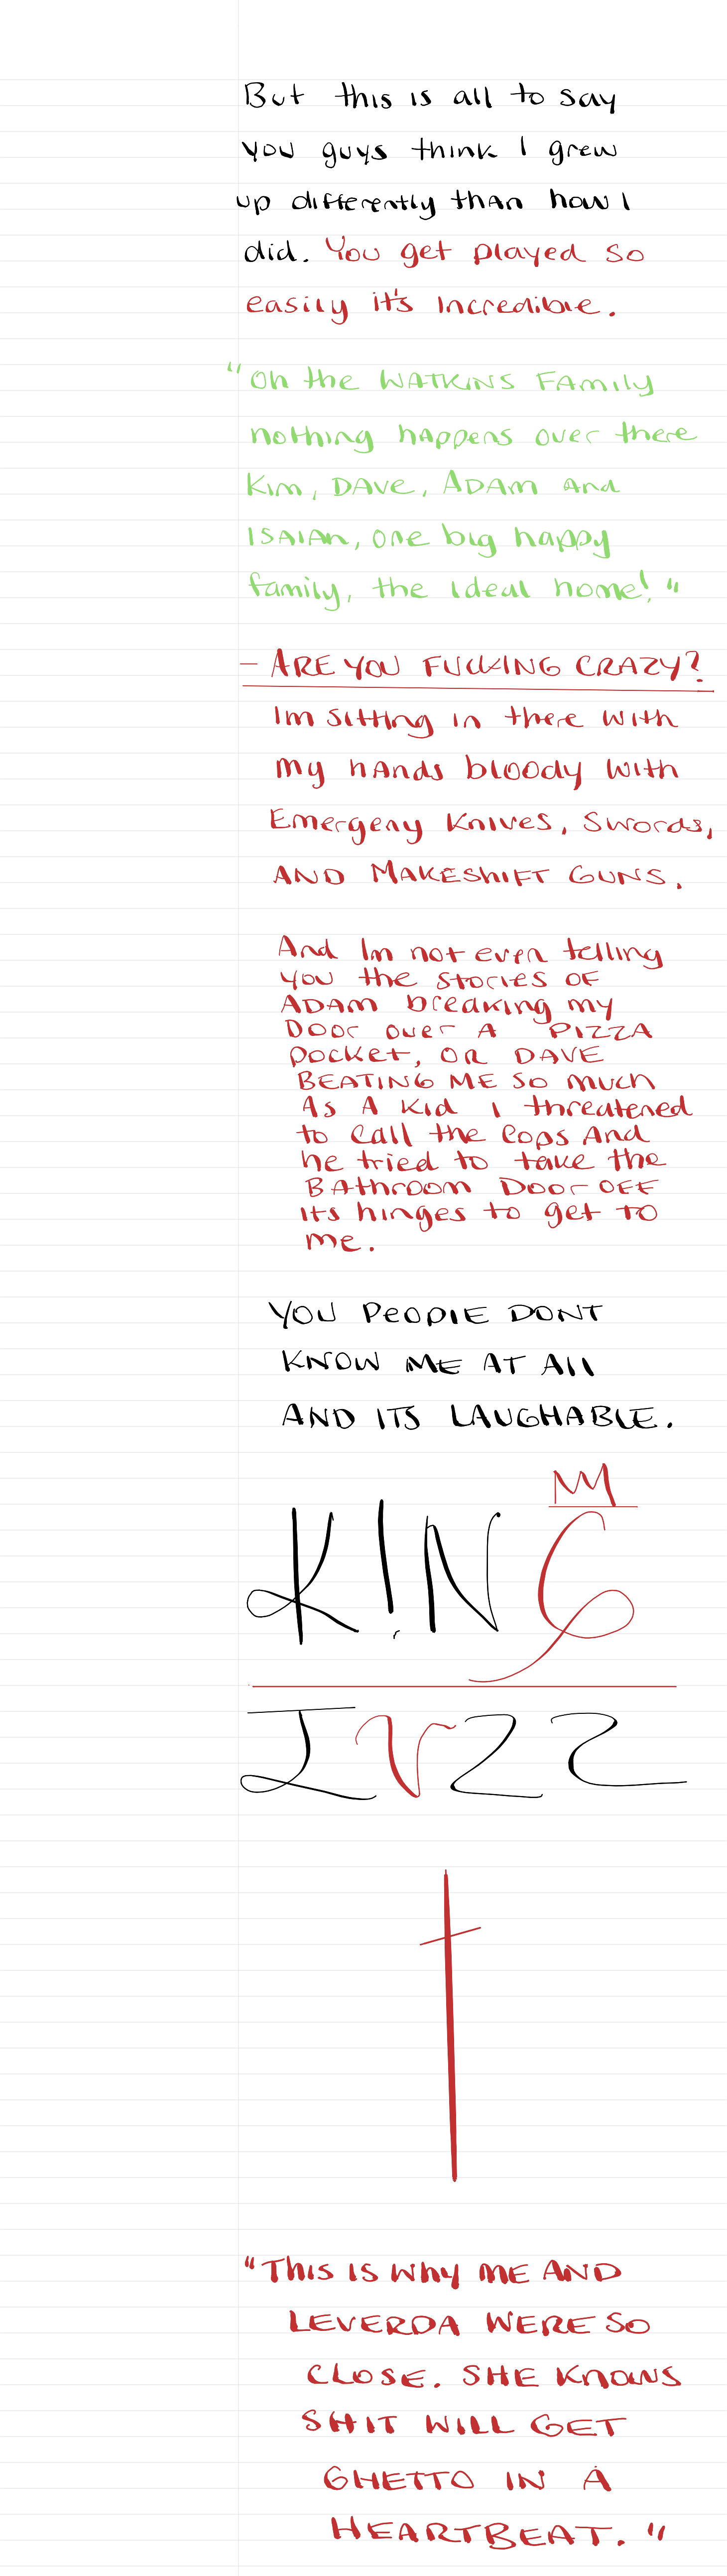 But this is all to say
you guys think I grew
up differently than how I
did. You get played so
easily it's incredible.
"Oh the WATKINS FAMILY
nothing happens over there
Kim, DAVE, ADAM and
ISAIAH, one big happy
family, the ideal home!"
- ARE YOU FUCKING CRAZY?
Im sitting in there with
my hands bloody with
Emergeny Knives, Swords,
AND MAKESHIFT GUNS.
And Im not even telling
you the stories OF
ADAM breaking my
Door over A PIZZA
pocket, OR DAVE
BEATING ME SO much
As A Kid I threatened
to call the cops And
he tried to take the
BAthroom Door OFF
its hinges to get to
me.
YOU PEOPLE DONT
KNOW ME AT All
AND ITS LAUGHABLE.
K!NG
IVZZ
"This is why ME AND
LEVERDA WERE SO
CLOSE. SHE KNOWS
SHIT WILL GET
GHETTO IN A
HEARTBEAT."